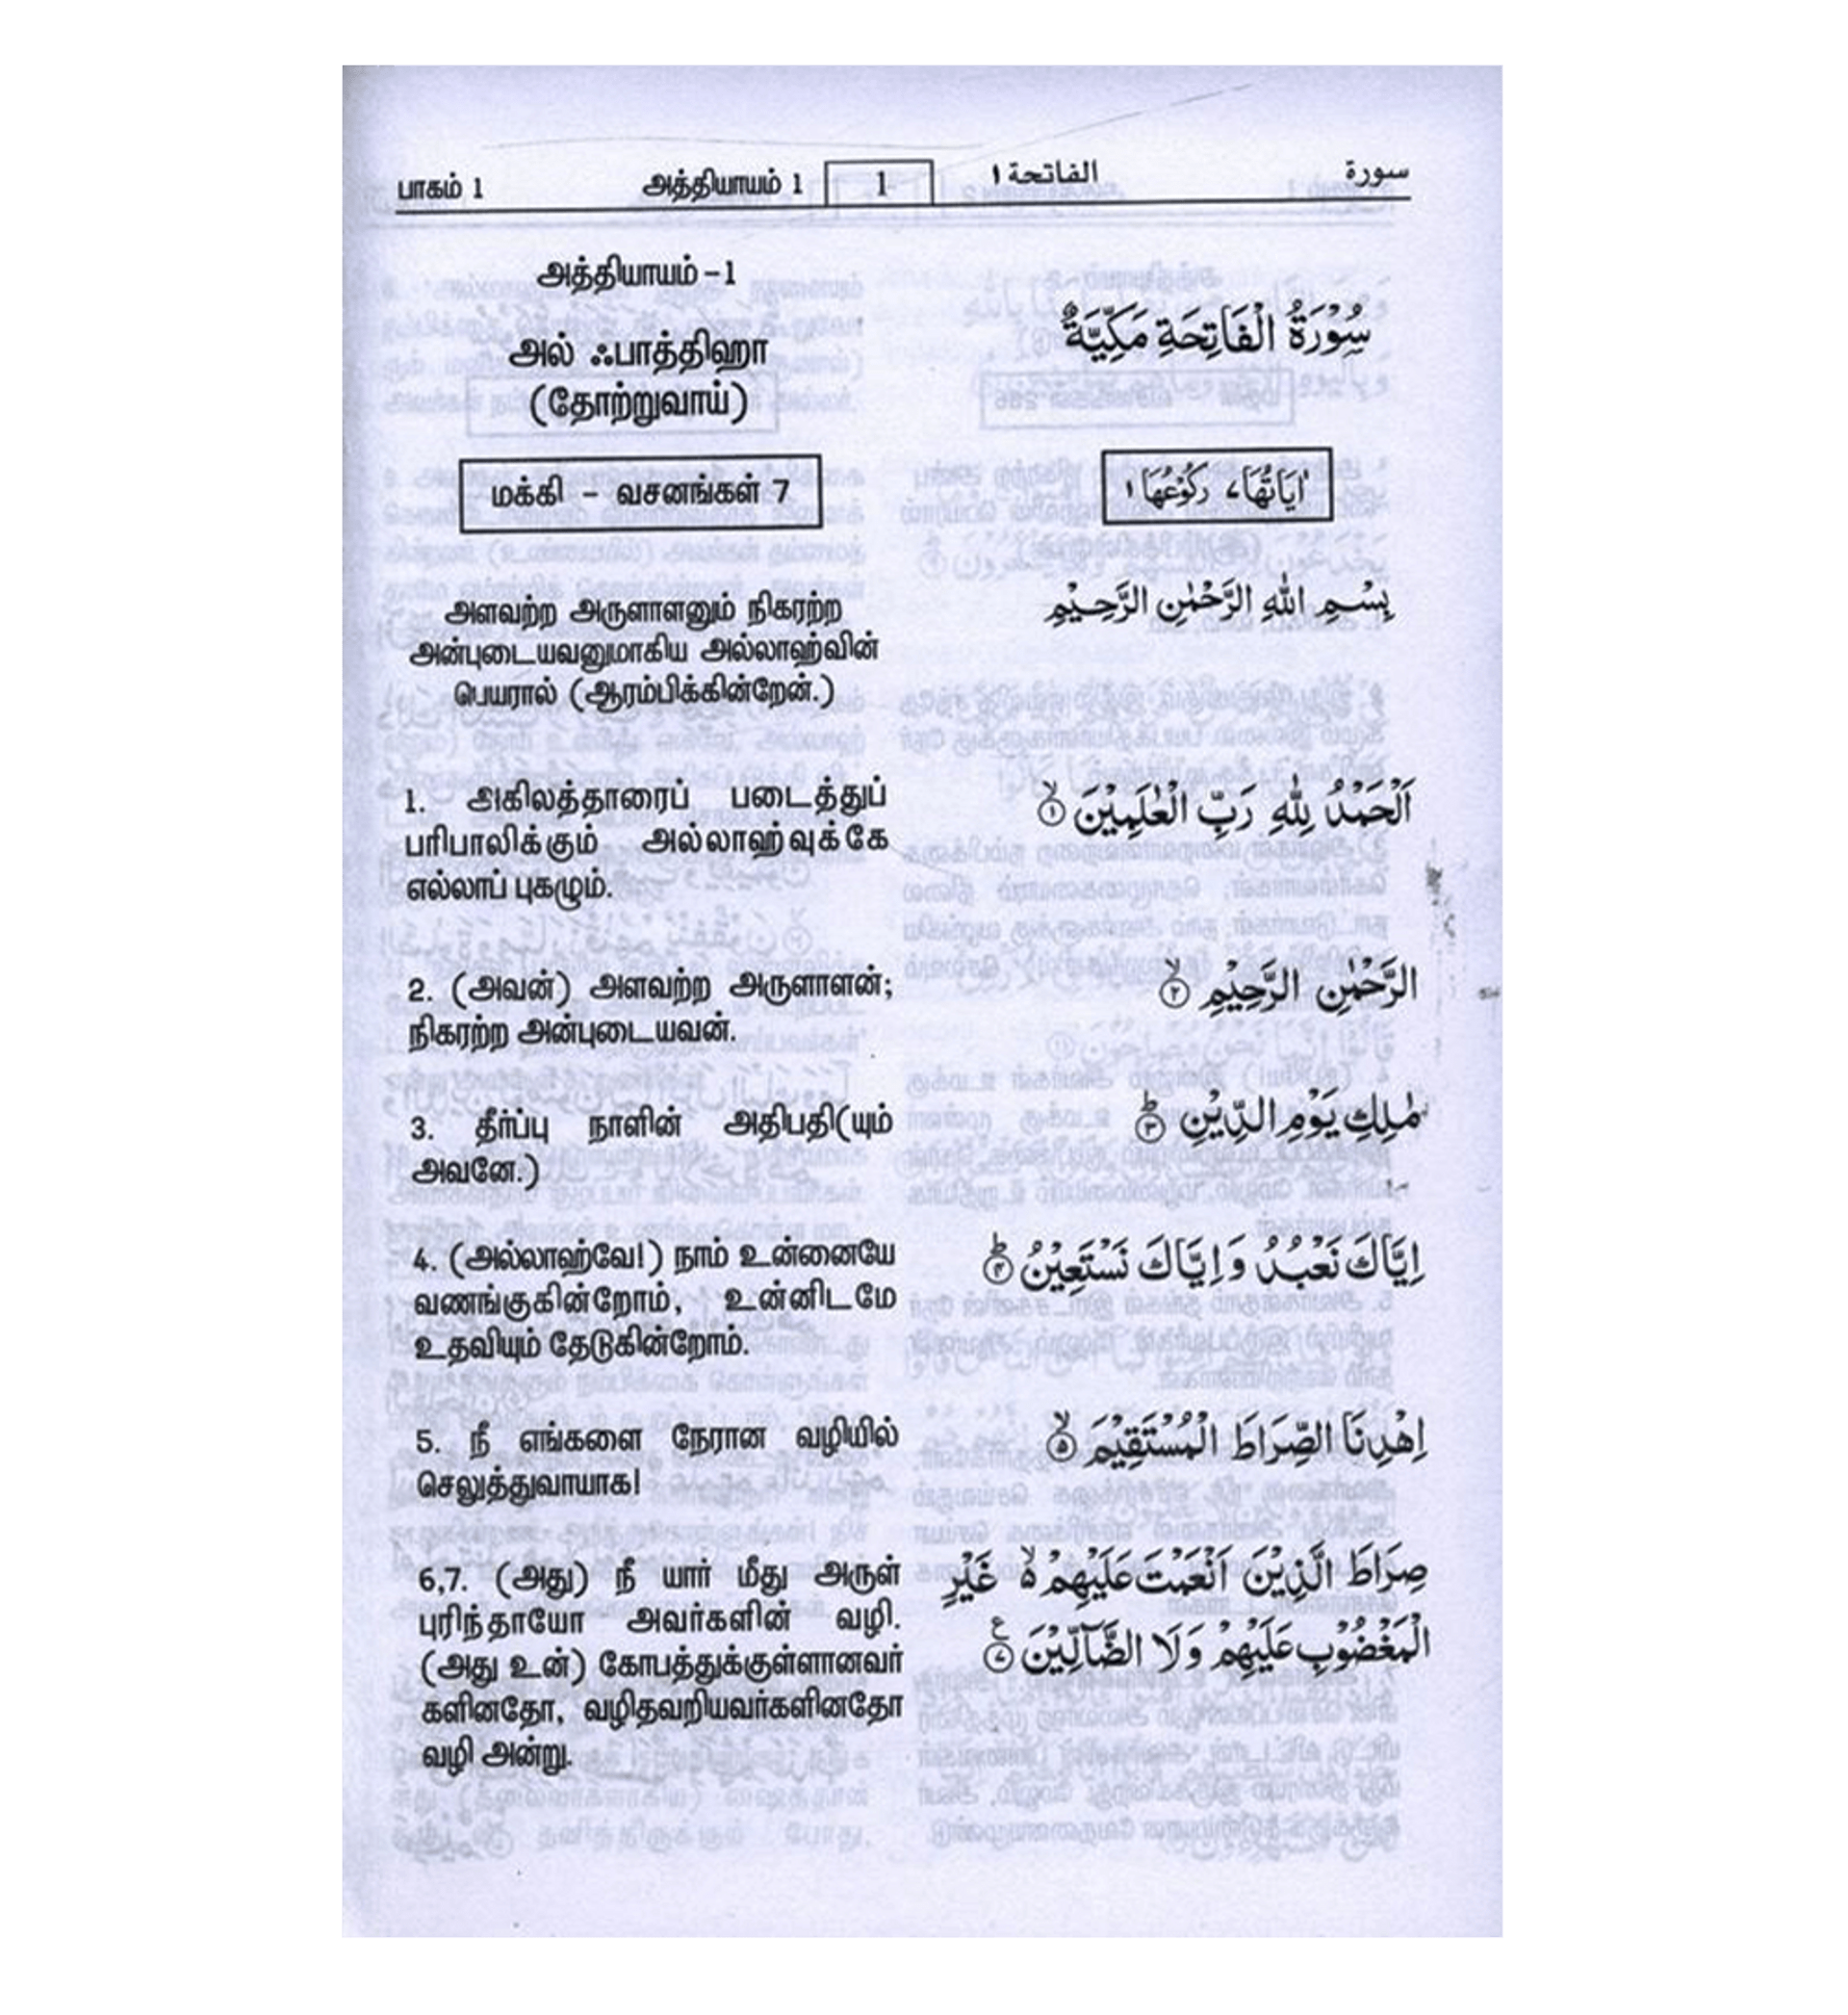 பாகம் 1 அத்தியாயம் 1 1 الفاتحة ١ سورة
அத்தியாயம் -1
அல் ஃபாத்திஹா
(தோற்றுவாய்)
மக்கி - வசனங்கள் 7
அளவற்ற அருளாளனும் நிகரற்ற
அன்புடையவனுமாகிய அல்லாஹ்வின்
பெயரால் (ஆரம்பிக்கின்றேன்.)
1. அகிலத்தாரைப் படைத்துப்
பரிபாலிக்கும் அல்லாஹ்வுக்கே
எல்லாப் புகழும்.
2. (அவன்) அளவற்ற அருளாளன்;
நிகரற்ற அன்புடையவன்.
3. தீர்ப்பு நாளின் அதிபதி(யும்
அவனே.)
4. (அல்லாஹ்வே!) நாம் உன்னையே
வணங்குகின்றோம், உன்னிடமே
உதவியும் தேடுகின்றோம்.
5. நீ எங்களை நேரான வழியில்
செலுத்துவாயாக!
6,7. (அது) நீ யார் மீது அருள்
புரிந்தாயோ அவர்களின் வழி.
(அது உன்) கோபத்துக்குள்ளானவர்
களினதோ, வழிதவறியவர்களினதோ
வழி அன்று.
سُوْرَةُ الْفَاتِحَةِ مَكِّيَّةٌ
اٰيَاتُهَا ٧ رُكُوْعُهَا ١
بِسْمِ اللهِ الرَّحْمٰنِ الرَّحِيْمِ
اَلْحَمْدُ لِلّٰهِ رَبِّ الْعٰلَمِيْنَ ۙ‏﴿١﴾
الرَّحْمٰنِ الرَّحِيْمِ ۙ‏﴿٢﴾
مٰلِكِ يَوْمِ الدِّيْنِ ؕ‏﴿٣﴾
اِيَّاكَ نَعْبُدُ وَاِيَّاكَ نَسْتَعِيْنُ ؕ‏﴿٤﴾
اِهْدِنَا الصِّرَاطَ الْمُسْتَقِيْمَ ۙ‏﴿٥﴾
صِرَاطَ الَّذِيْنَ اَنْعَمْتَ عَلَيْهِمْ ۙ۬ غَيْرِ
الْمَغْضُوْبِ عَلَيْهِمْ وَلَا الضَّآلِّيْنَ ﴿٧﴾ ع